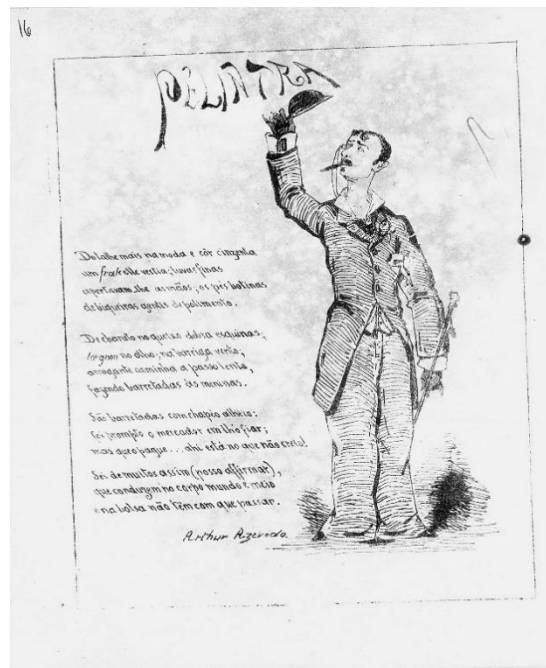 16
PELINTRA
Do talhe mais na moda e côr cinzenta
um frack elle vestia; luvas finas
apertavam-lhe as mãos, os pés botinas
de biqueiras agudis de polimento.
De charuto no queixo dobra esquinas;
lorgnon no olho; na barriga vento;
arrogante caminha a passo lento,
fazendo barretadas ás meninas.
São barretadas com chapéo alheio:
foi prompto o mercador em lh'o fiar;
mas que o pague... ahi está no que não creio!
Sei de muitos assim (posso affirmar),
que conduzem no corpo mundo e meio
e na bolsa não têm com que passar.
Arthur Azevedo.